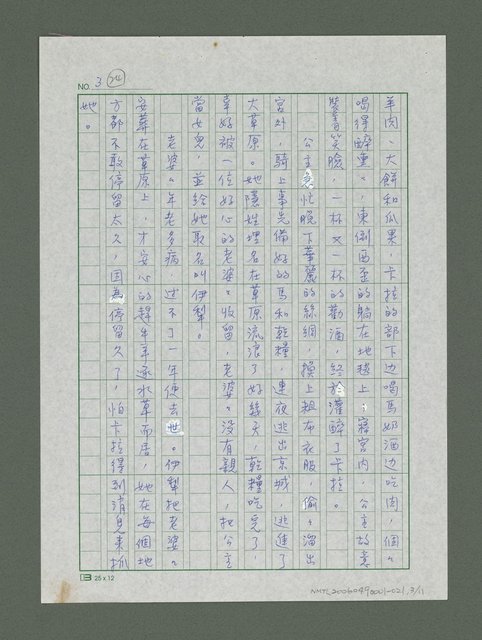 NO. 3 (24)
羊肉、大餅和瓜果，卡拉的部下邊喝馬奶酒邊吃肉，個々
喝得醉薰々，東倒西歪的躺在地毯上；寢宮內，公主故意
裝著笑臉，一杯又一杯的勸酒，終於灌醉了卡拉。
公主急忙脫下華麗的絲綢，換上粗布衣服，偷々溜出
宮外，騎上事先備好的馬和乾糧，連夜逃出京城，逃進了
大草原。她隱姓埋名在草原流浪了好幾天，乾糧吃完了，
幸好被一位好心的老婆々收留，老婆々沒有親人，把公主
當女兒，並給她取名叫伊犁。
老婆々年老多病，过不了一年便去世。伊犁把老婆々
安葬在草原上，才安心的趕牛羊逐水草而居，她在每個地
方都不敢停留太久，因為停留久了，怕卡拉得到消息來抓
她。
25 x 12
NMTL20060490001-021, 3/11